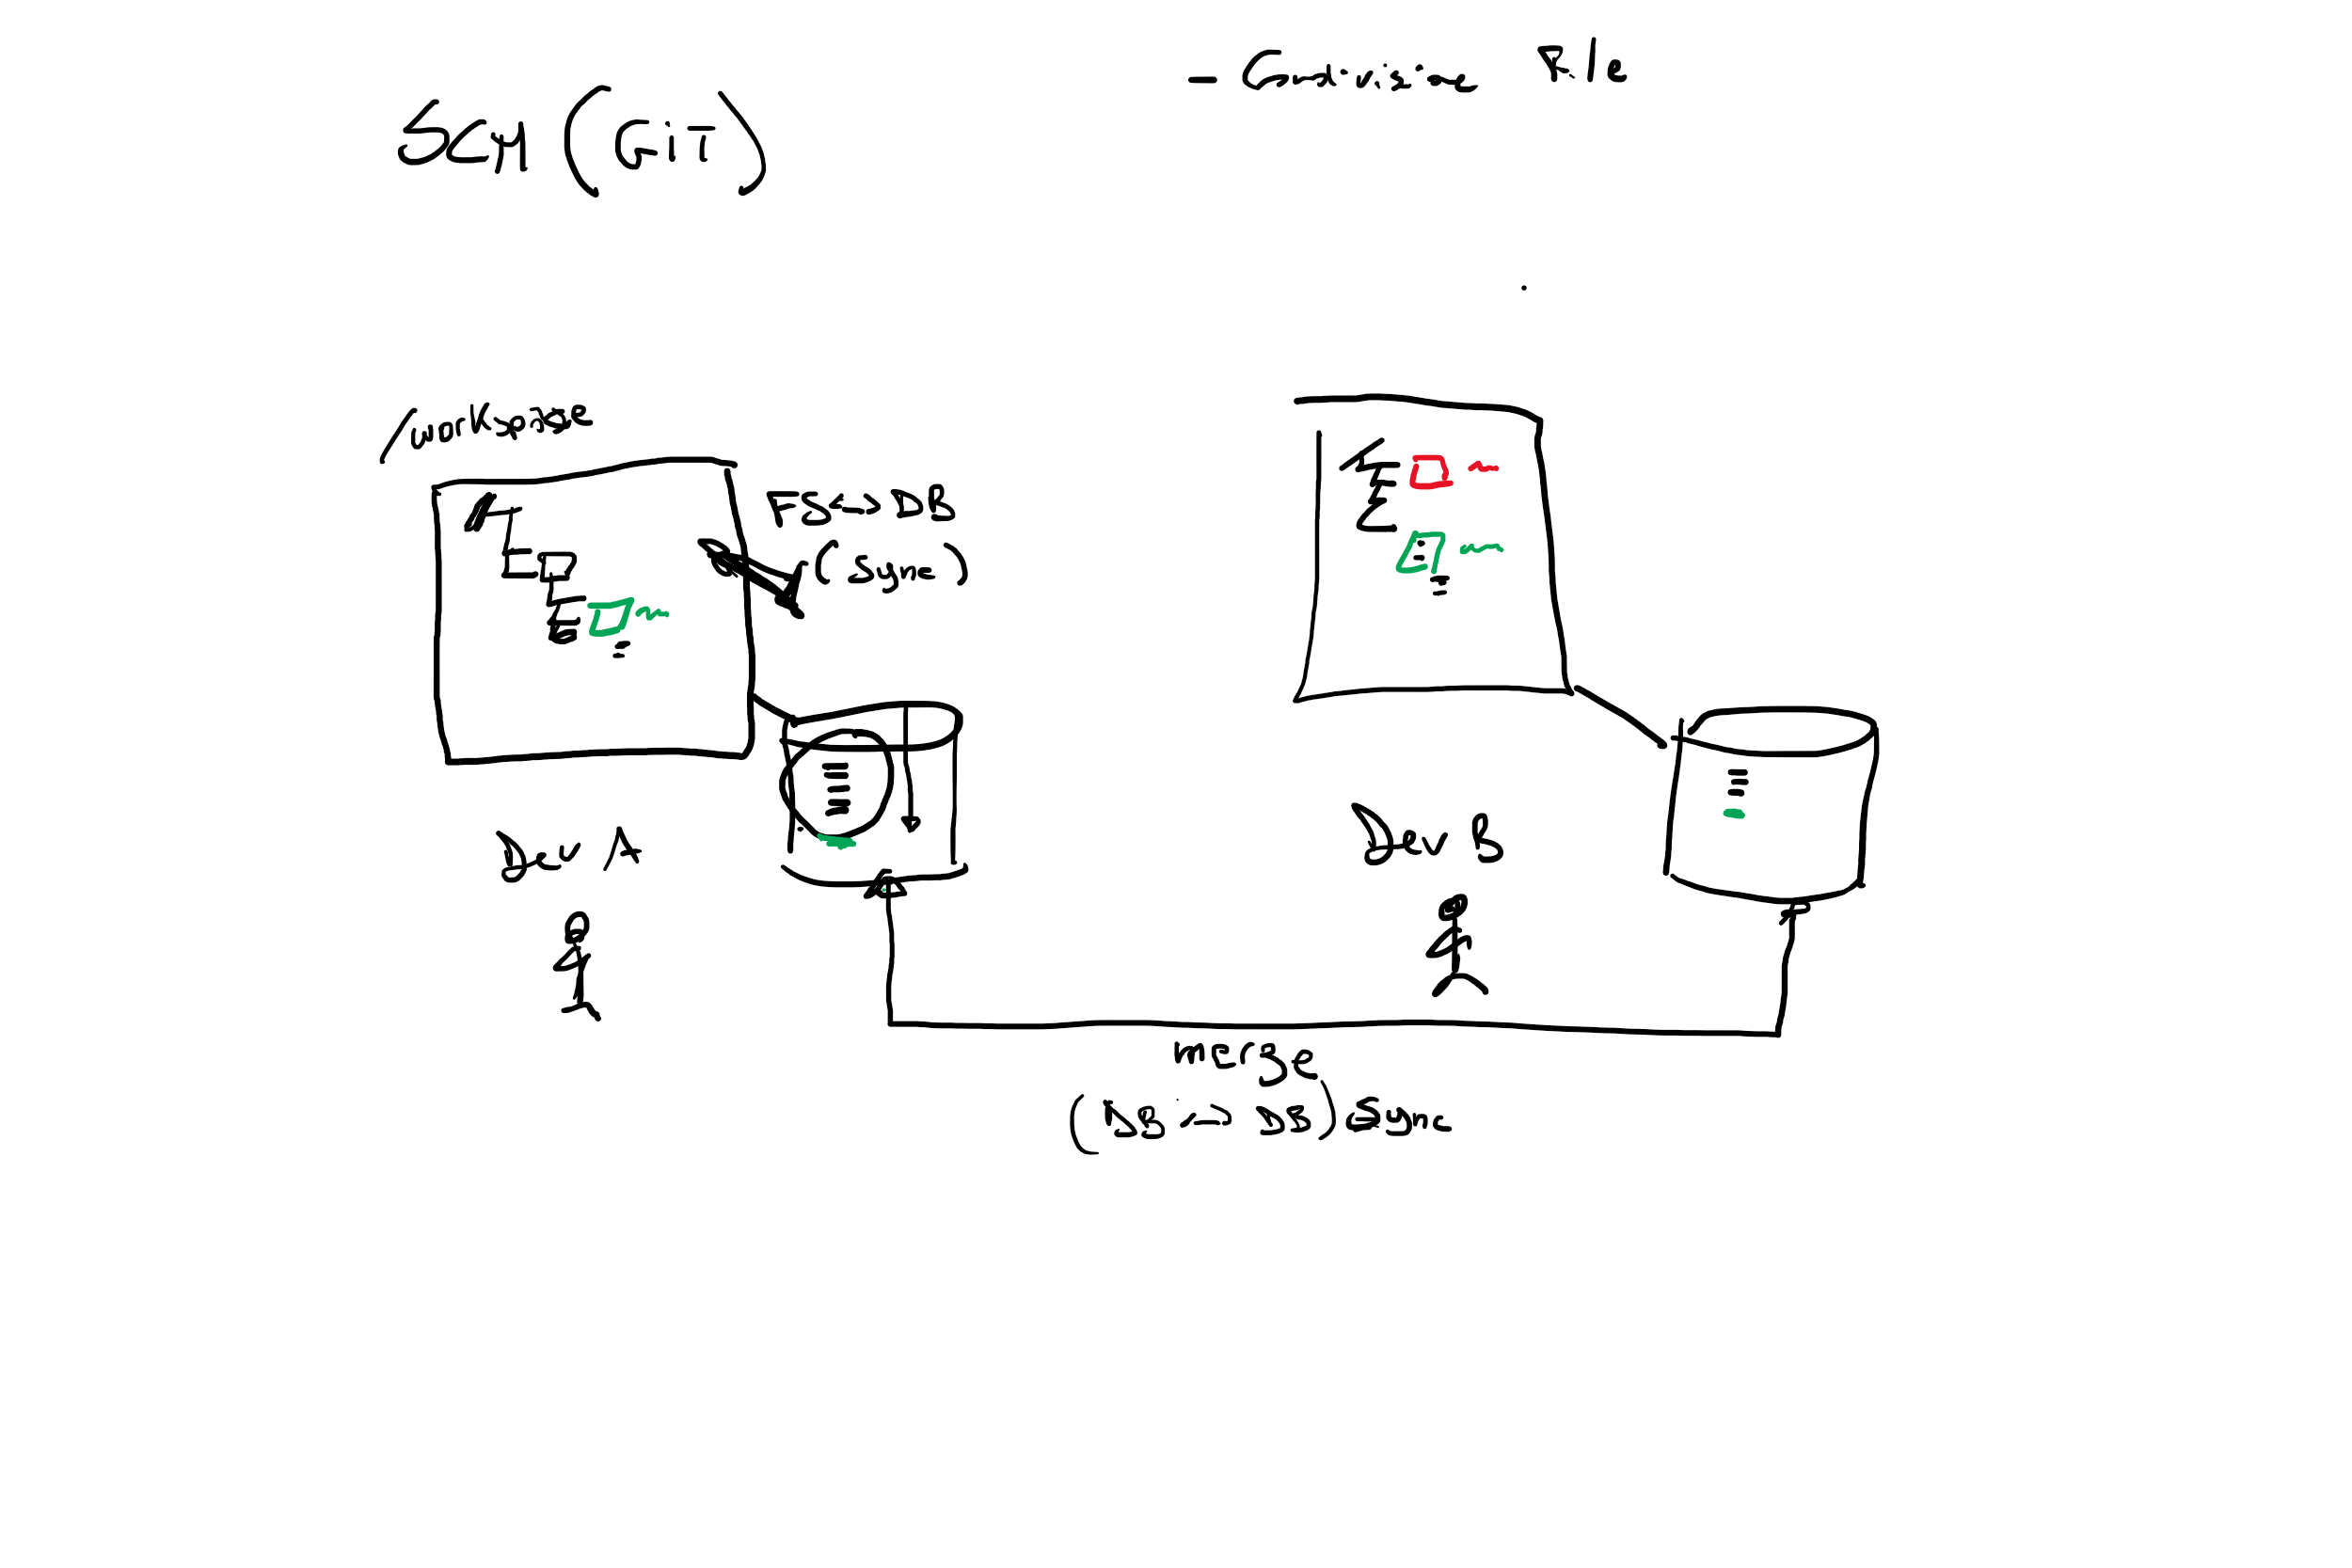 SCM (GiT)
- Condivisione F/le
/workspace
FS <-> DB
(sync)
Dev A
Dev B
merge
(DB <-> DB) sync